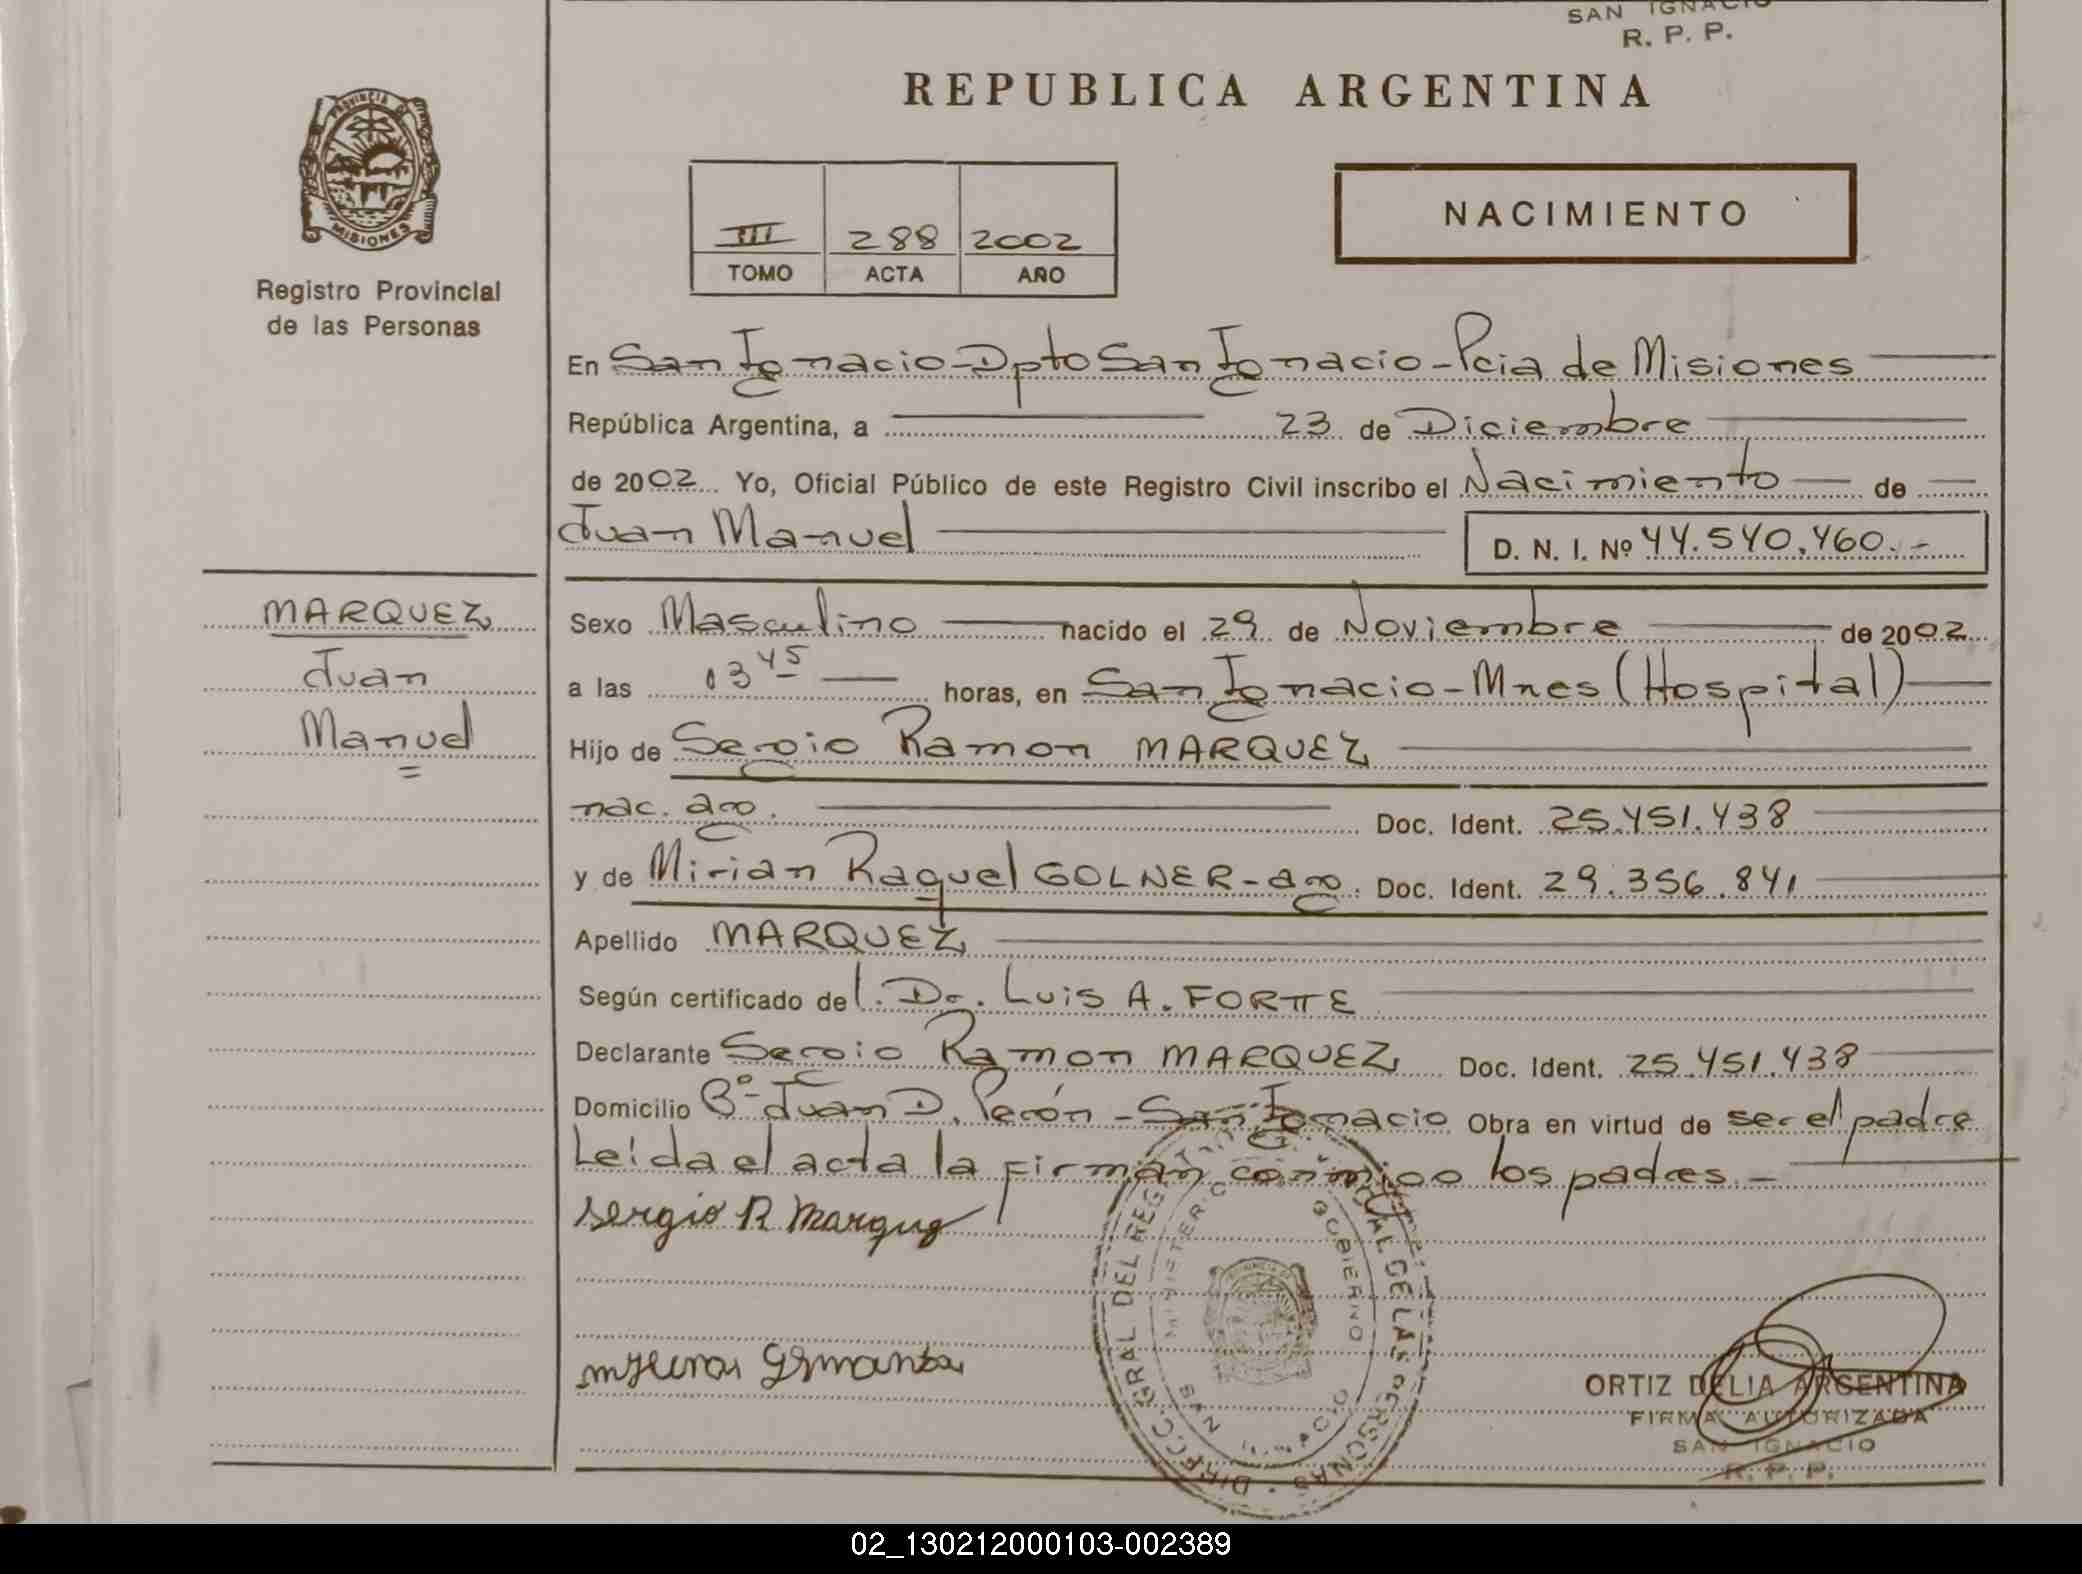 SAN IGNACIO
R. P. P.
REPUBLICA ARGENTINA
PROVINCIA DE
MISIONES
Registro Provincial
de las Personas
III 288 2002
TOMO ACTA AÑO
NACIMIENTO
En San Ignacio - Dpto San Ignacio - Pcia de Misiones
República Argentina, a 23 de Diciembre
de 2002 Yo, Oficial Público de este Registro Civil inscribo el Nacimiento de
Juan Manuel D. N. I. Nº 44.540.460.-
MARQUEZ
Juan
Manuel
Sexo Masculino nacido el 29 de Noviembre de 2002
a las 03 45 horas, en San Ignacio - Mnes (Hospital)
Hijo de Sergio Ramon MARQUEZ
nac. arg. Doc. Ident. 25.451.438
y de Mirian Raquel GOLNER - arg. Doc. Ident. 29.356.841
Apellido MARQUEZ
Según certificado del Dr. Luis A. FORTTE
Declarante Sergio Ramon MARQUEZ Doc. Ident. 25.451.438
Domicilio Bº Juan D. Perón - San Ignacio Obra en virtud de ser el padre
Leida el acta la firman conmigo los padres.-
Sergio R Marquez
DIRECC. GRAL DEL REG DE LAS PERSONAS
MINISTERIO GOBIERNO
ORTIZ DELIA ARGENTINA
FIRMA AUTORIZADA
SAN IGNACIO
R. P. P.
02_130212000103-002389